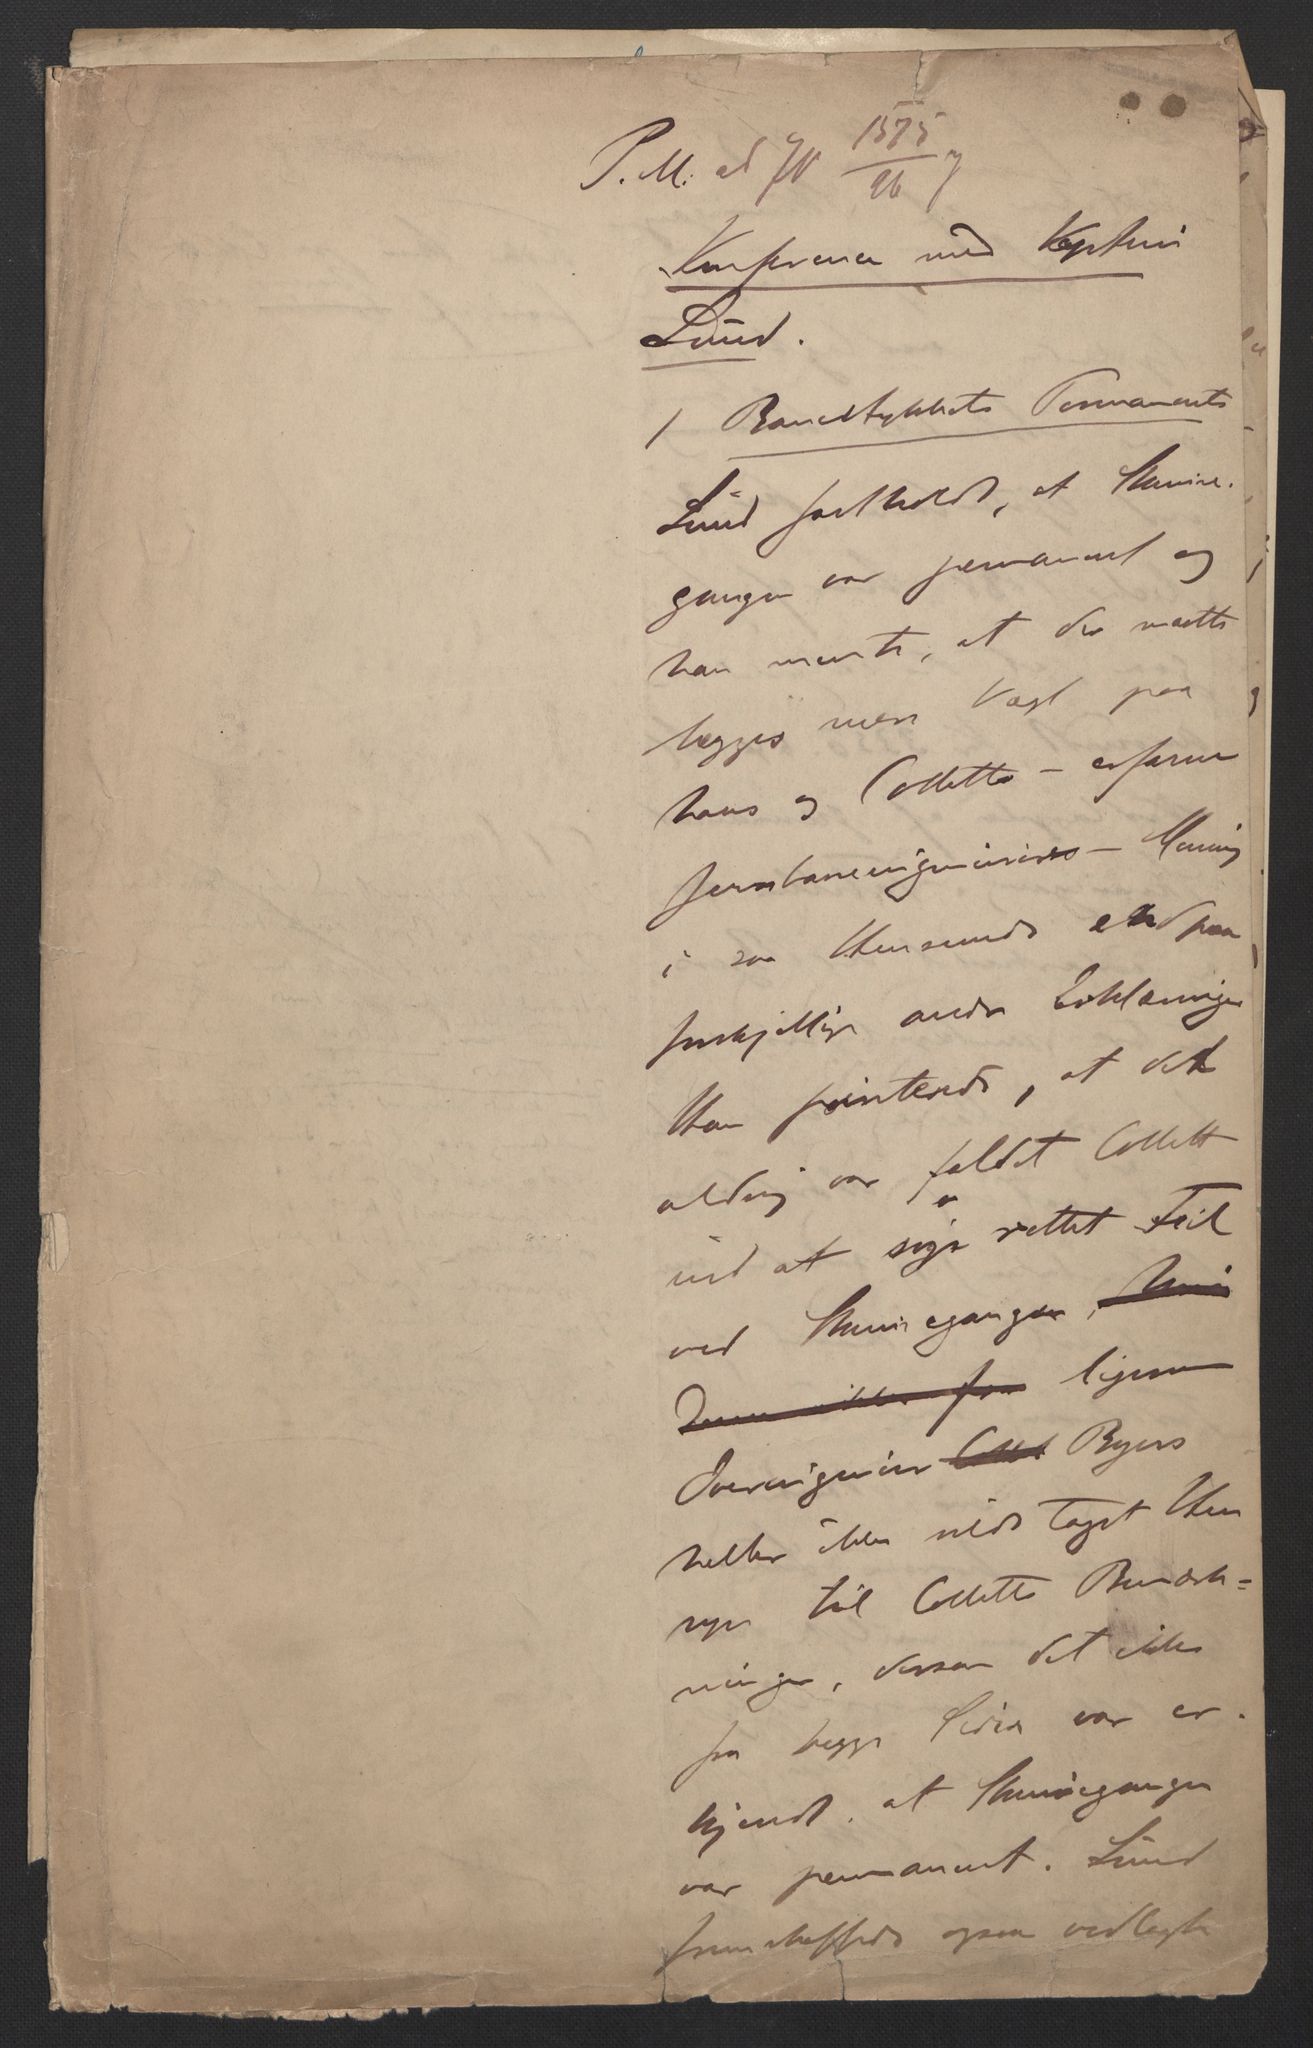 P. M. ad JN 1575/96
Konference med Kaptein
Lund.
1 Banestykkets Permanents
Lund fastholdt, at Skinne-
gangen var permanent og
han mente, at der maatte
lægges mere Vægt paa
hans og Colletts – erfarne
jernbaneingeniører – Mening
i saa Henseende end paa
forskjellige andre Erklæringer
Han pointerede, at det
aldrig var faldt Collett
ind at søge rettet Feil
ved Skinnegangen,
ligesom
Overingeniør Byers
heller ikke vilde taget Hen
syn til Colletts Bemærk=
ninger, dersom det ikke
fra begge Sider var er-
kjendt, at Skinnegangen
var permanent. Lund
fremskaffede ogsaa vedlagte